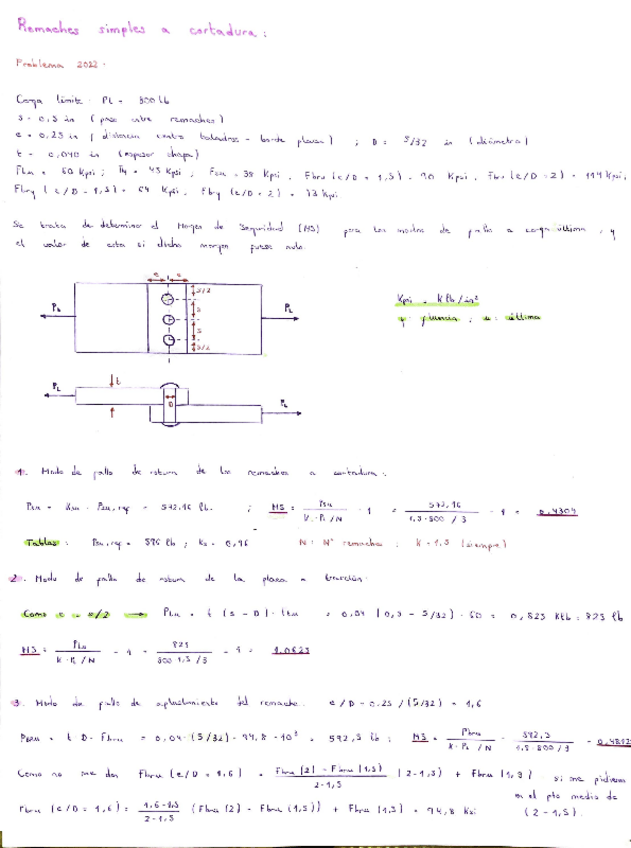 Remaches simples a cortadura:
Problema 2022.
Carga límite: PL = 800 lb
s = 0,5 in (paso entre remaches)
e = 0,25 in (distancia centro taladros - borde placa) ; D = 5/32 in (diámetro)
t = 0,040 in (espesor chapa)
Ftu = 60 Kpsi ; Fty = 45 Kpsi ; Fsu = 38 Kpsi . Fbru (e/D = 1,5) = 90 Kpsi . Fbru (e/D = 2) = 114 Kpsi ;
Fbry (e/D = 1,5) = 64 Kpsi . Fbry (e/D = 2) = 73 Kpsi
Se trata de determinar el Margen de Seguridad (MS) para los modos de fallo a carga última , y
el valor de esta si dicho margen fuese nulo.
e e
s/2
s
s
s/2
PL PL
Kpsi = Klb/in²
y: fluencia ; u: última
PL t
D
PL
1. Modo de fallo de rotura de los remaches a cortadura:
Psu = Ksu · Psu,ref = 572,16 lb. ; MS = Psu / (K · PL / N) - 1 = 572,16 / (1,5 · 800 / 3) - 1 = 0,4304
Tablas: Psu,ref = 596 lb ; Ks = 0,96 N: Nº remaches ; K = 1,5 (siempre)
2. Modo de fallo de rotura de la placa a tracción.
Como e = s/2 → Ptu = t (s - D) · Ftu = 0,04 (0,5 - 5/32) · 60 = 0,823 Klb = 823 lb
MS = Ptu / (K · PL / N) - 1 = 823 / (800 · 1,5 / 3) - 1 = 1.0625
3. Modo de fallo de aplastamiento del remache. e/D = 0.25 / (5/32) = 1,6
Pbru = t · D · Fbru = 0,04 · (5/32) · 94,8 · 10³ = 592,5 lb ; MS = Pbru / (K · PL / N) = 592,5 / (1,5 · 800 / 3) = 0,48125
Como no me dan Fbru (e/D = 1,6) = (Fbru (2) - Fbru (1,5)) / (2 - 1,5) (2 - 1,5) + Fbru (1,5) si me pidieran
en el pto medio de
Fbru (e/D = 1,6) = (1,6 - 1,5) / (2 - 1,5) (Fbru (2) - Fbru (1,5)) + Fbru (1,5) = 94,8 Ksi (2 - 1,5).